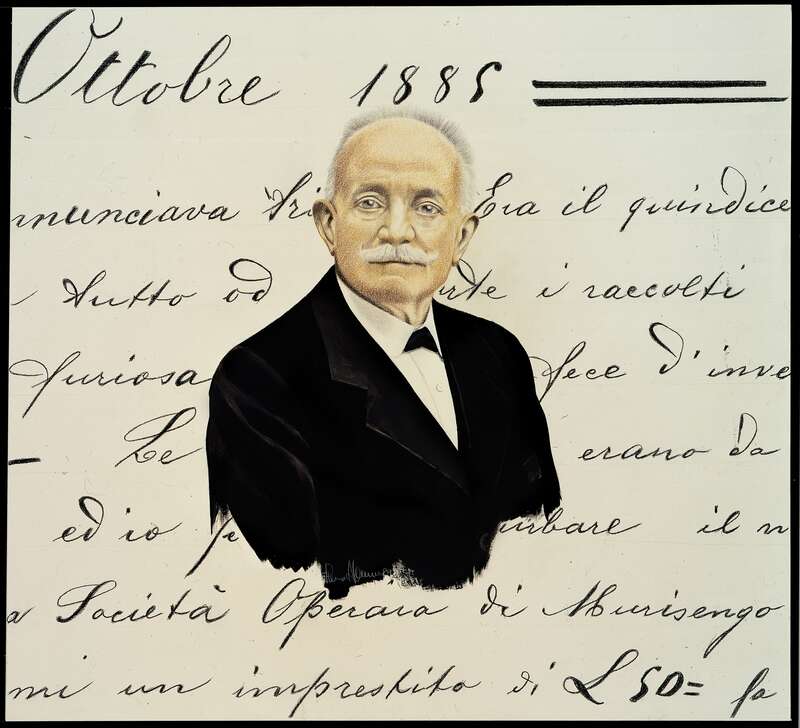 Ottobre 1885
nnunciava tri Era il quindice
tutto od rte i raccolti
furiosa fece d'inve
- Le erano da
ed io p urbare il n
a Società Operaia di Murisengo
mi un imprestito di £ 50= fa